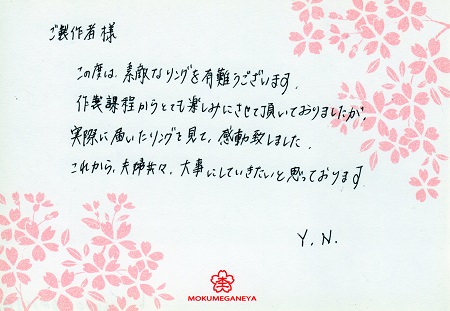 ご製作者様
この度は、素敵なリングを有難うございます。
作製課程からとても楽しみにさせて頂いておりましたが、
実際に届いたリングを見て、感動致しました。
これから、夫婦共々、大事にしていきたいと思っております。
Y.N.
MOKUMEGANEYA